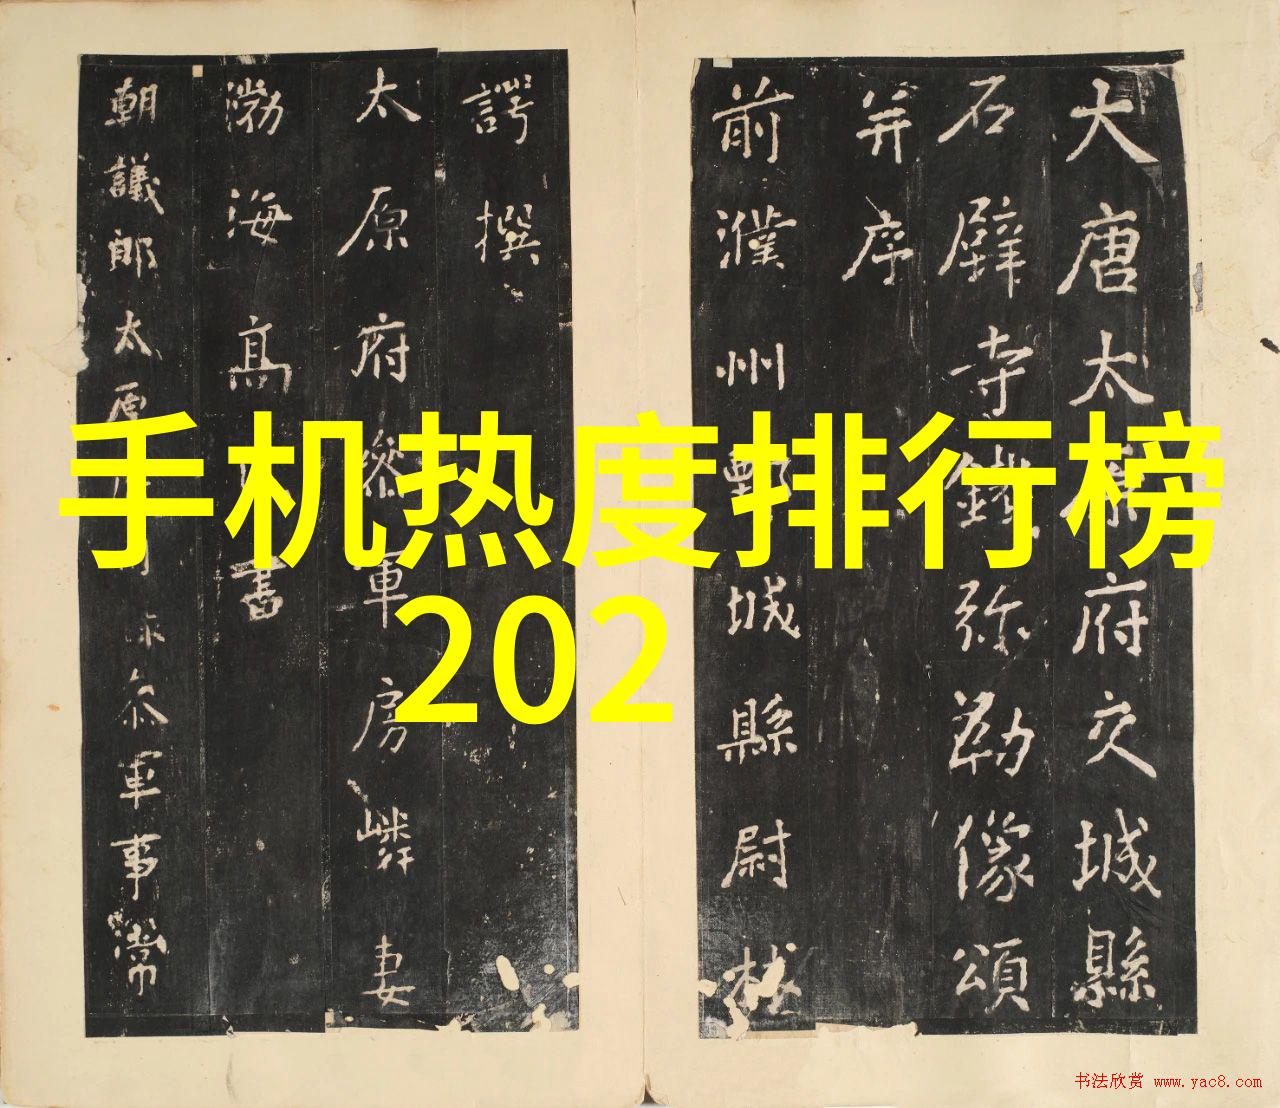 手机热度排行榜
202
大唐太原府交城縣
石壁寺鐵弥勒像頌
并序
前濮州鄄城縣尉林
諤撰
太原府叅軍房嶙妻
渤海高氏書
朝議郎太原府司叅軍事常
书法欣赏 www.yac8.com